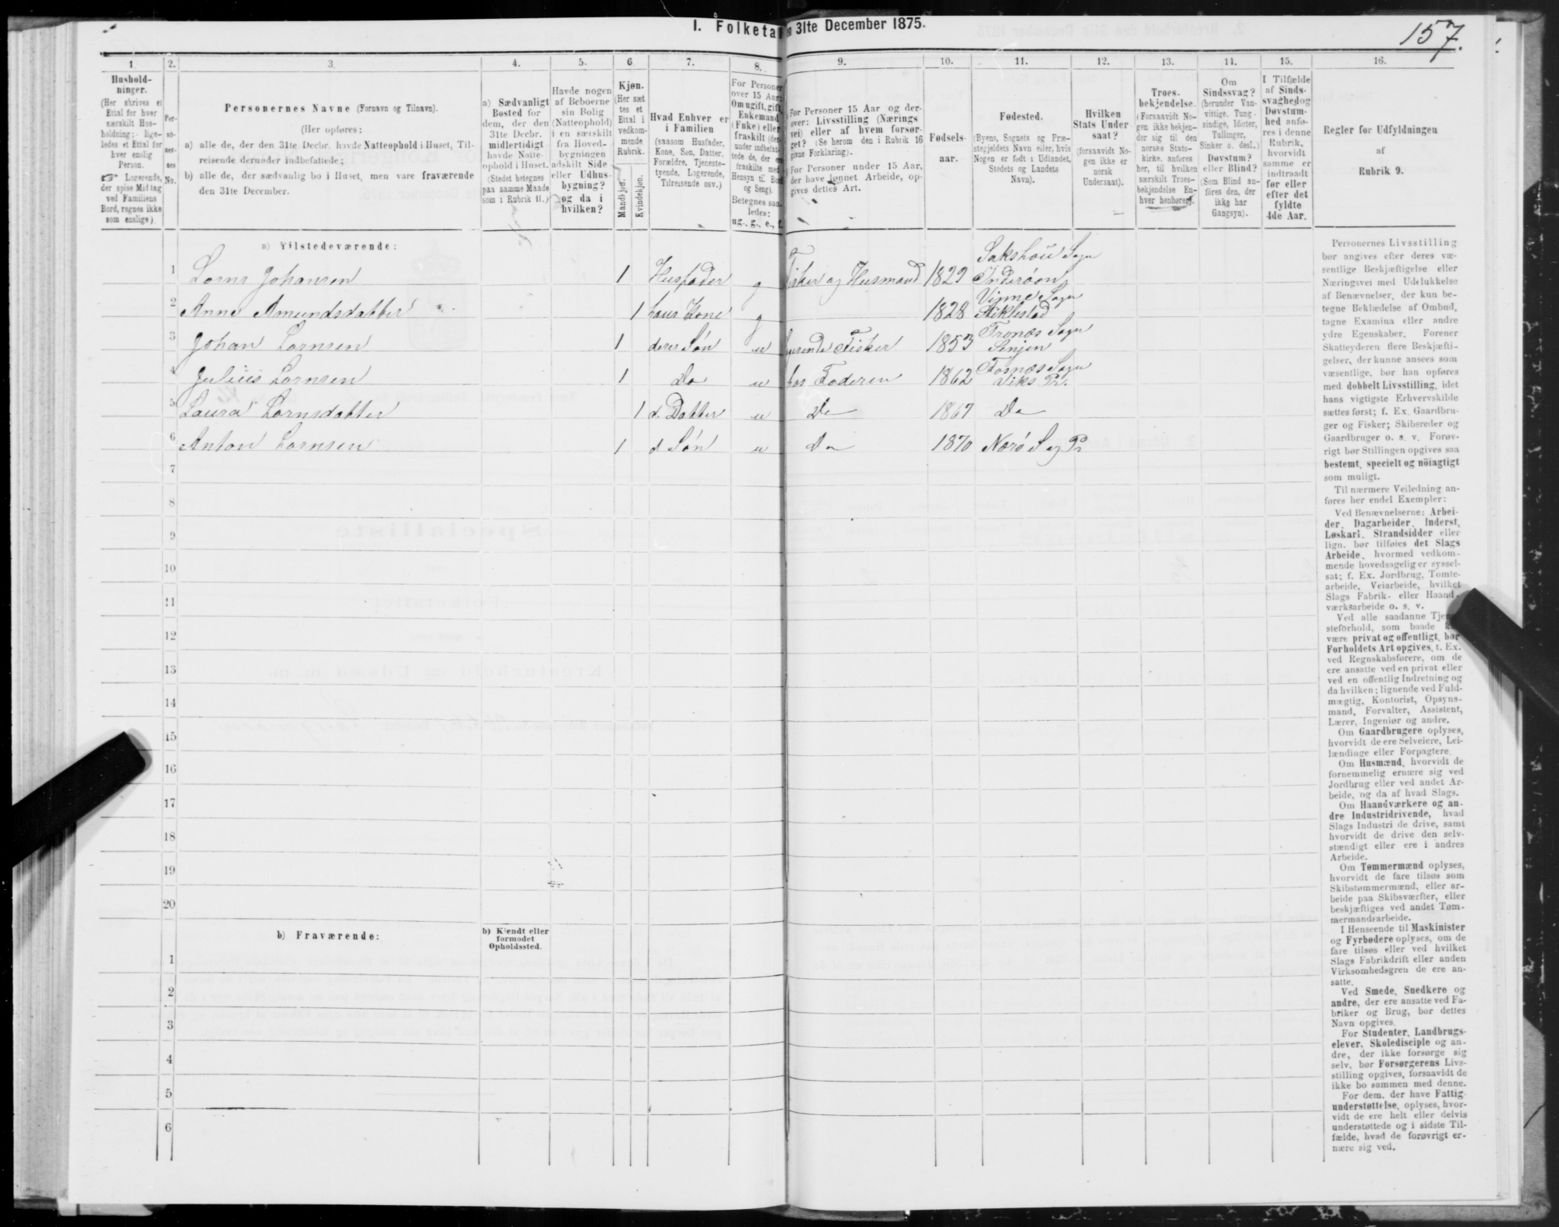 I. Folketa n 31te December 1875.
157.
1.
2.
3.
4.
5.
6
7.
8.
9.
10.
11.
12.
13.
14.
15.
16.
Hushold-
ninger.
(Her skrives et
Ettal for hver
særskilt Hus-
holdning; lige-
ledes et Ettal for
hver enslig
Person.
☞ Logerende,
der spise Middag
ved Familiens
Bord, regnes ikke
som enslige.)
Per-
so-
ner-
nes
No.
Personernes Navne (Fornavn og Tilnavn).
(Her opføres:
a) alle de, der den 31te Decbr. havde Natteophold i Huset, Til-
reisende derunder indbefattede;
b) alle de, der sædvanlig bo i Huset, men vare fraværende
den 31te December.
a) Sædvanligt
Bosted for
dem, der den
31te Decbr.
midlertidigt
havde Natte-
ophold i Huset.
(Stedet betegnes
paa samme Maade
som i Rubrik 11.)
Havde nogen
af Beboerne
sin Bolig
(Natteophold)
i en særskilt
fra Hoved-
bygningen
adskilt Side-
eller Udhus-
bygning?
og da i
hvilken?
Kjøn.
(Her sæt-
tes et
Ettal i
vedkom-
mende
Rubrik.
Mandkjøn.
Kvindekjøn.
Hvad Enhver er
i Familien
(saasom Husfader,
Kone, Søn, Datter,
Forældre, Tjeneste-
tyende, Logerende,
Tilreisende osv.)
For Personer
over 15 Aar:
Om ugift, gift,
Enkemand
(Enke) eller
fraskilt
Betegnes saa-
ledes:
ug., g., e., f.
For Personer 15 Aar og der-
over: Livsstilling (Nærings-
vei) eller af hvem forsør-
get? (Se herom den i Rubrik 16
givne Forklaring).
For Personer under 15 Aar,
der have lønnet Arbeide, op-
gives dettes Art.
Fødsels-
aar.
Fødested.
(Byens, Sognets og Præ-
stegjeldets Navn eller, hvis
Nogen er født i Udlandet,
Stedets og Landets
Navn).
Hvilken
Stats Under-
saat?
(forsaavidt No-
gen ikke er
norsk
Undersaat).
Troes-
bekjendelse.
(Forsaavidt No-
gen ikke bekjen-
der sig til den
norske Stats-
kirke, anføres
her, til hvilken
særskilt Troes-
bekjendelse En-
hver henhører).
Om
Sindssvag?
(herunder Van-
vittige, Tung-
sindige, Idioter,
Tullinger,
Sinker o. desl.)
Døvstum?
eller Blind?
(Som Blind an-
føres den, der
ikke har
Gangsyn).
I Tilfælde
af Sinds-
svaghed og
Døvstum-
hed anfø-
res i denne
Rubrik,
hvorvidt
samme er
indtraadt
før eller
efter det
fyldte
4de Aar.
Regler for Udfyldningen
af
Rubrik 9.
a) Tilstedeværende:
1 Lorns Johansen 1 Husfader g Fisker og Husmand 1829 Sakshou Sogn
Inderøens
2 Anne Amundsdatter 1 hans Kone g 1828 Vinne Sogn
Stiklestad
3 Johan Lornsen 1 deres Søn u Fisker 1853 Tronæs Sogn
Senjen
4 Julius Lornsen 1 Do u hos Faderen 1862 Fosnæs Sogn
Viks Pr.
5 Laura Lornsdatter 1 d. Datter u Do 1867 Do
6 Anton Lornsen 1 d Søn u Do 1870 Nærø S og P
7
8
9
10
11
12
13
14
15
16
17
18
19
20
b) Fraværende:
b) Kjendt eller
formodet
Opholdssted.
1
2
3
4
5
6
Personernes Livsstilling
bør angives efter deres væ-
sentlige Beskjæftigelse eller
Næringsvei med Udelukkelse
af Benævnelser, der kun be-
tegne Beklædelse af Ombud,
tagne Examina eller andre
ydre Egenskaber. Forener
Skatteyderen flere Beskjæfti-
gelser, der kunne ansees som
væsentlige, bør han opføres
med dobbelt Livsstilling, idet
hans vigtigste Erhvervskilde
sættes først; f. Ex. Gaardbru-
ger og Fisker; Skibsreder og
Gaardbruger o. s. v. Forøv-
rigt bør Stillingen opgives saa
bestemt, specielt og nöiagtigt
som muligt.
Til nærmere Veiledning an-
føres her endel Exempler:
Ved Benævnelserne: Arbei-
der, Dagarbeider, Inderst,
Løskarl, Strandsidder eller
lign. bør tilføies det Slags
Arbeide, hvormed vedkom-
mende hovedsagelig er syssel-
sat; f. Ex. Jordbrug, Tomte-
arbeide, Veiarbeide, hvilket
Slags Fabrik- eller Haand-
værksarbeide o. s. v.
Ved alle saadanne Tjene-
steforhold, som baade kan
være privat og offentligt, bør
Forholdets Art opgives, f. Ex.
ved Regnskabsførere, om de
ere ansatte ved en privat eller
ved en offentlig Indretning og
da hvilken; lignende ved Fuld-
mægtig, Kontorist, Opsyns-
mand, Forvalter, Assistent,
Lærer, Ingeniør og andre.
Om Gaardbrugere oplyses,
hvorvidt de ere Selveiere, Lei-
lændinge eller Forpagtere.
Om Husmænd, hvorvidt de
fornemmelig ernære sig ved
Jordbrug eller ved andet Ar-
beide, og da af hvad Slags.
Om Haandværkere og an-
dre Industridrivende, hvad
Slags Industri de drive, samt
hvorvidt de drive den selv-
stændigt eller ere i andres
Arbeide.
Om Tømmermænd oplyses,
hvorvidt de fare tilsøs som
Skibstømmermænd, eller ar-
beide paa Skibsværfter, eller
beskjæftiges ved andet Tøm-
mermandsarbeide.
I Henseende til Maskinister
og Fyrbødere oplyses, om de
fare tilsøs eller ved hvilket
Slags Fabrikdrift eller anden
Virksomhedsgren de ere an-
satte.
Ved Smede, Snedkere og
andre, der ere ansatte ved Fa-
briker og Brug, bør dettes
Navn opgives.
For Studenter, Landbrugs-
elever, Skoledisciple og an-
dre, der ikke forsørge sig
selv, bør Forsørgerens Livs-
stilling opgives, forsaavidt de
ikke bo sammen med denne.
For dem, der have Fattig-
understøttelse, oplyses, hvor-
vidt de ere helt eller delvis
understøttede og i sidste Til-
fælde, hvad de forøvrigt er-
nære sig ved.